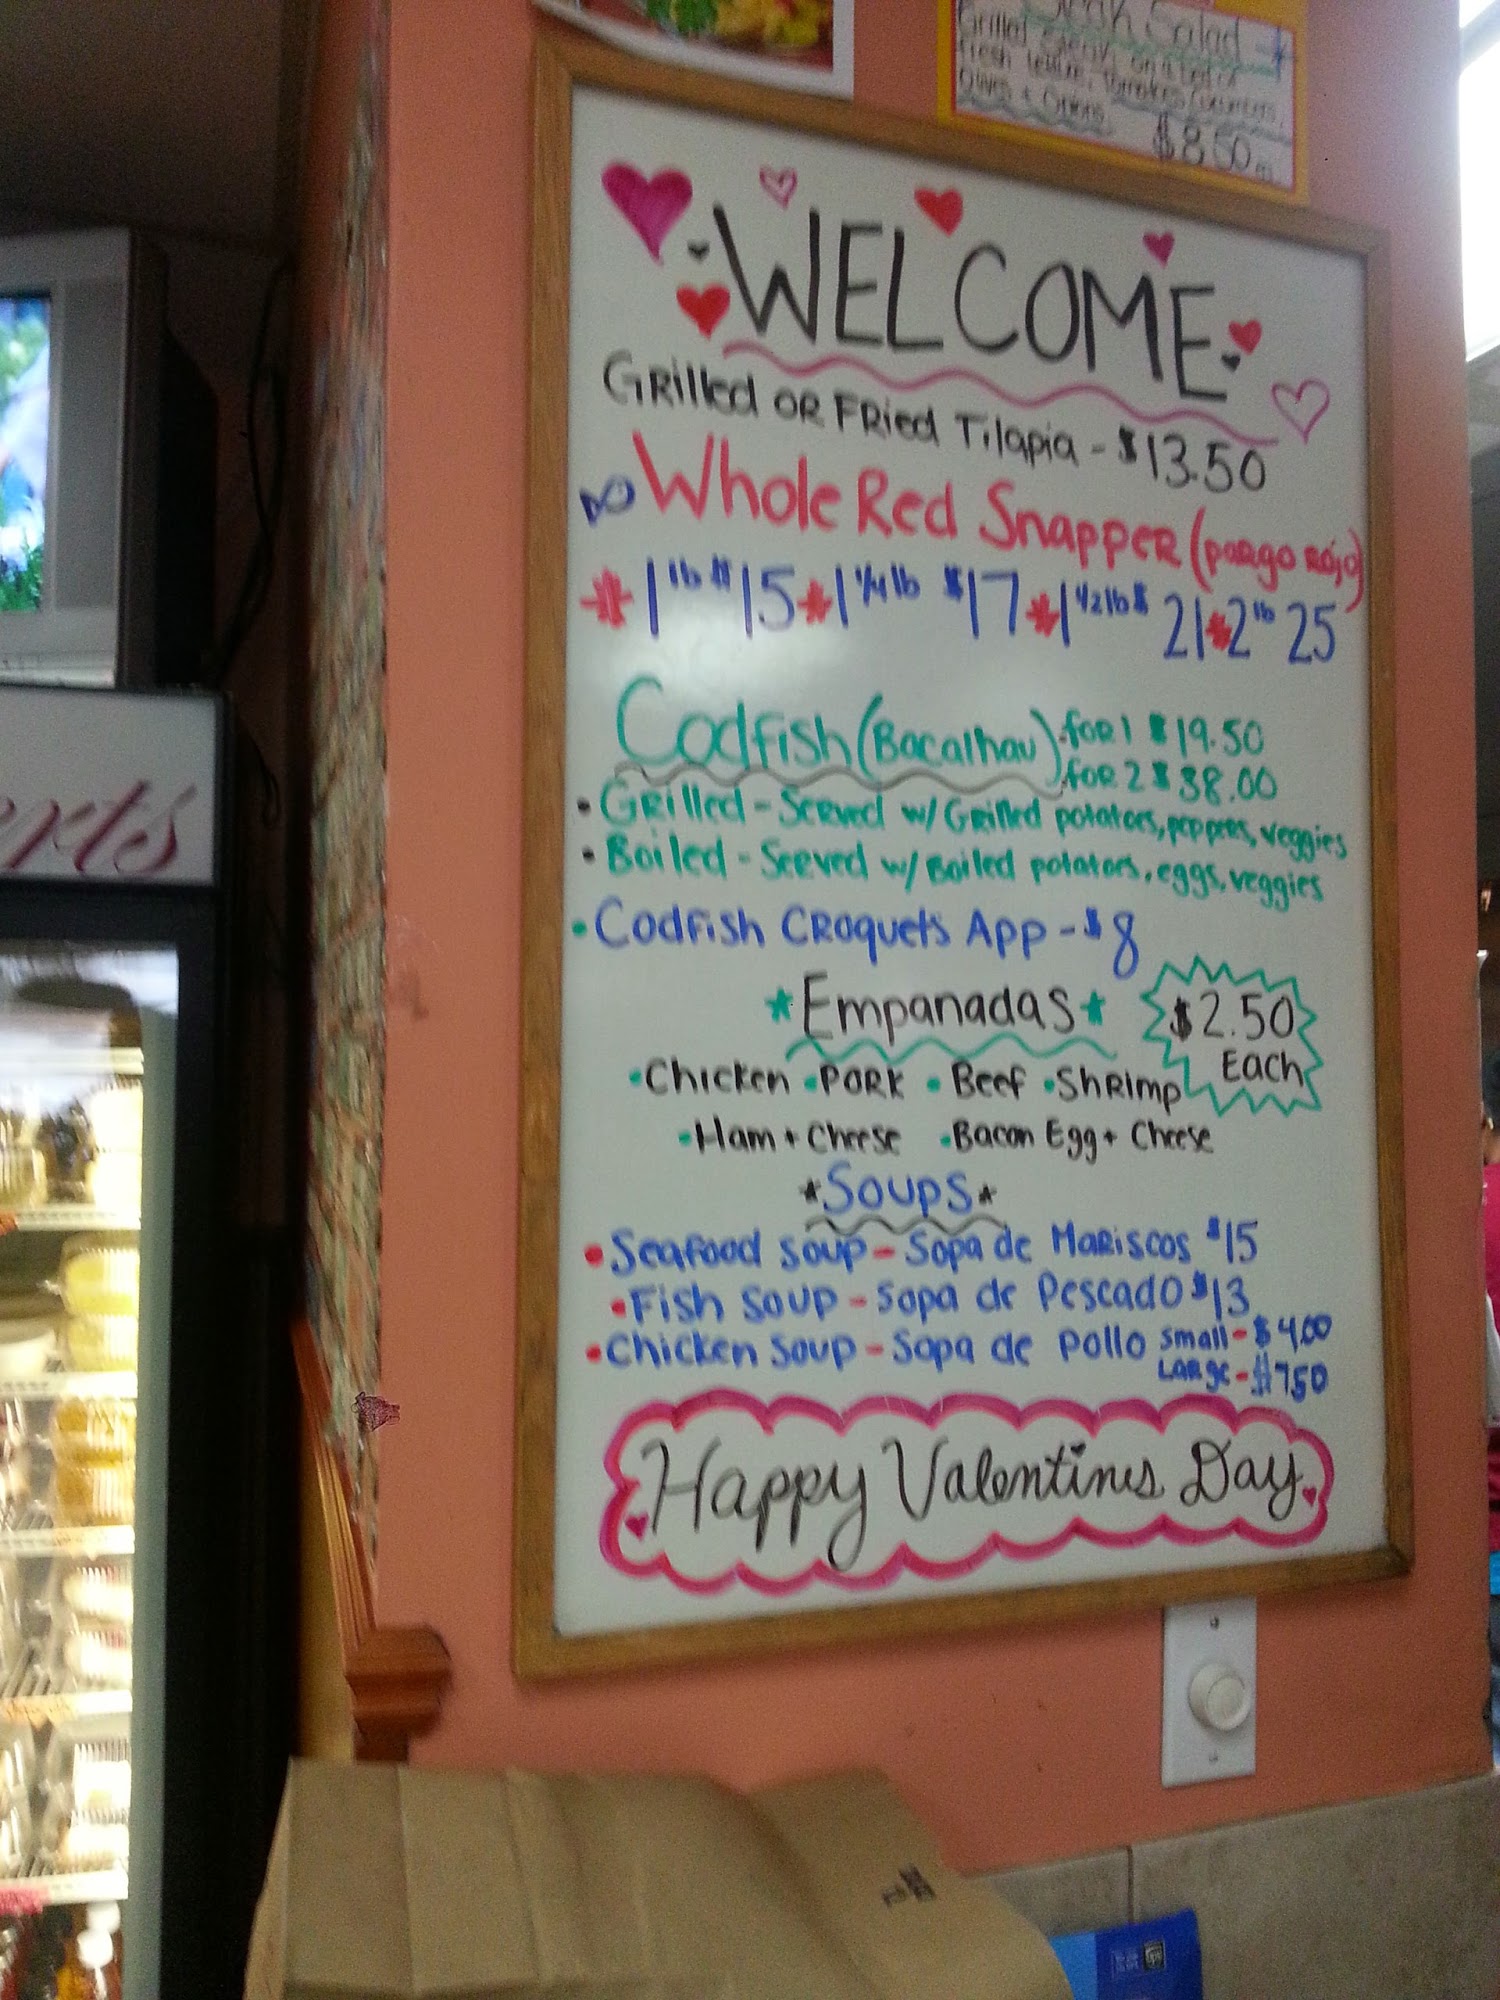 Steak Salad
Grilled steak on a bed of
Fresh lettuce, Tomatoes, Cucumbers,
Olives + Onions.
$8.50
WELCOME
GRilled OR FRied Tilapia - $13.50
Whole Red Snapper (paRgo Rojo)
1 lb $15 * 1 1/4 lb $17 * 1 1/2 lb $ 21 * 2 lb 25
Codfish (Bacalhau) .foR 1 $19.50
.foR 2 $38.00
• GRilled - Served w/ GRilled potatoes, peppers, veggies
• Boiled - Served w/ Boiled potatoes, eggs, veggies
• Codfish CRoquets App - $8
* Empanadas *
$2.50
Each
• Chicken • PORK • Beef • ShRimp
• Ham + Cheese • Bacon Egg + Cheese
* Soups *
• Seafood Soup - Sopa de MaRiscos $15
• Fish Soup - Sopa de Pescado $13
• Chicken Soup - Sopa de Pollo Small - $4.00
LaRge - $7.50
Happy Valentines Day